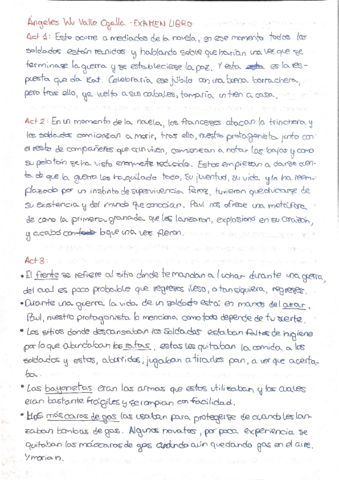 Ángeles Wu Valle Ogalla - EXAMEN LIBRO
Act 1: Esto ocurre a mediados de la novela, en ese momento todos los
soldados están reunidos y hablando sobre que harían una vez que se
terminase la guerra y se estableciese la paz. Y esta es la res-
puesta que da Kat. Celebraría ese júbilo con una buena borrachera,
pero tras ello, ya vuelto a sus cabales, tomaría un tren a casa.
Act 2: En un momento de la novela, los franceses atacan la trinchera y
los soldados comienzan a morir, tras ello, nuestro protagonista junto con
el resto de compañeros que aún viven, comienzan a notar las bajas y como
su pelotón se ha visto enormemente reducido. Estos empiezan a darse cuen-
ta de que la guerra les ha quitado todo, su juventud, su vida y la ha reem-
plazado por un instinto de supervivencia feroz, tuvieron que educarse de
su existencia y del mundo que conocían. Paul nos ofrece una metáfora
de como la primera granada que les lanzaron, explosionó en su corazón,
y acabó con lo que una vez fueron.
Act 3:
• El frente se refiere al sitio donde te mandan a luchar durante una guerra,
del cual es poco probable que regreses ileso, o tan siquiera, regreses.
• Durante una guerra la vida de un soldado está en manos del azar,
Paul, nuestro protagonista lo menciona como todo depende de tu suerte.
• Los sitios donde descansaban los soldados estaban faltos de higiene
por lo que abundaban las ratas, estas les quitaban la comida a los
soldados y estos, aburridos, jugaban a tirarles pan, a ver que acerta-
ba.
• Las bayonetas eran las armas que estos utilizaban, y las cuales
eran bastante frágiles y se rompían con facilidad.
• Las máscaras de gas las usaban para protegerse de cuando les lan-
zaban bombas de gas. Algunos novatos, por poca experiencia se
quitaban las máscaras de gas cuando aún quedando gas en el aire.
Y morían.